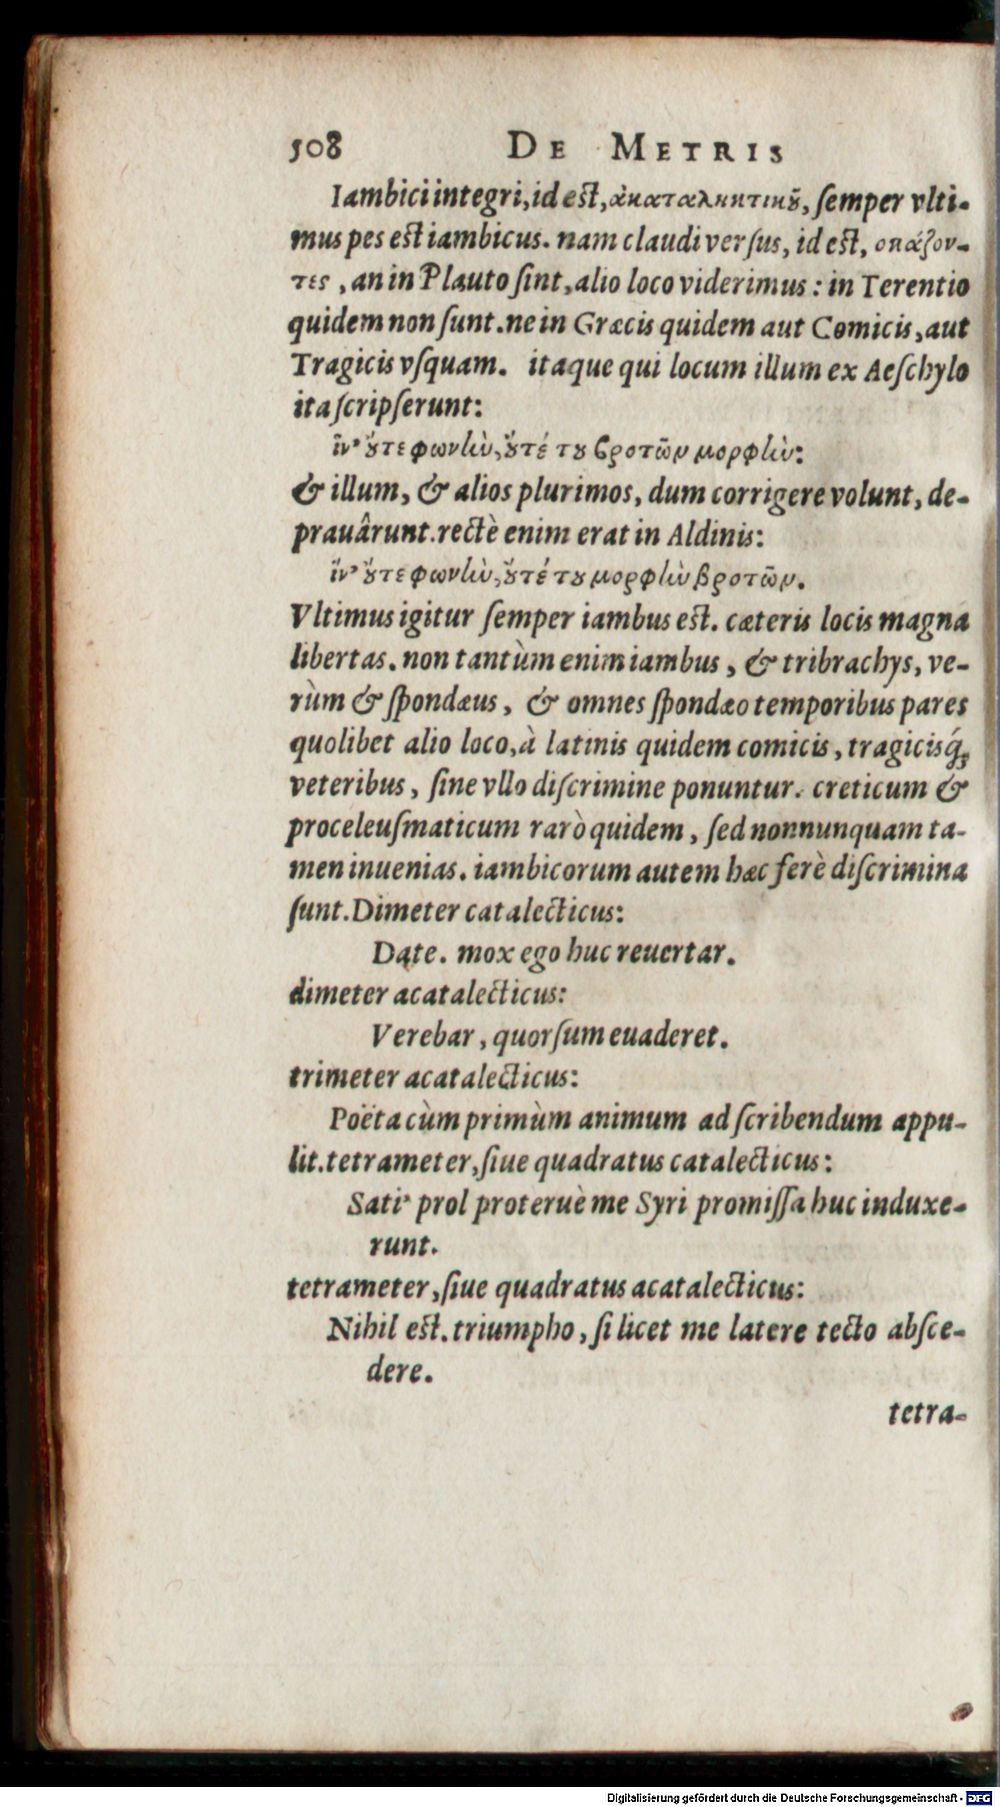 508 DE METRIS
Iambici integri, id est, ἀκαταληκτικοῦ, ſemper vlti-
mus pes est iambicus. nam claudi verſus, id est, σκάζον-
τες, an in Plauto ſint, alio loco viderimus: in Terentio
quidem non ſunt. ne in Græcis quidem aut Comicis, aut
Tragicis vſquam. itaque qui locum illum ex Aeſchylo
ita ſcripſerunt:
ἵν' ȣ̓τε φωνὴν, ȣ̓τέ τȣ βροτῶν μορφὴν:
& illum, & alios plurimos, dum corrigere volunt, de-
prauârunt. rectè enim erat in Aldinis:
ἵν' ȣ̓τε φωνὴν, ȣ̓τέ τȣ μορφὴν βροτῶν.
Vltimus igitur ſemper iambus est. cæteris locis magna
libertas. non tantùm enim iambus, & tribrachys, ve-
rùm & ſpondæus, & omnes ſpondæo temporibus pares
quolibet alio loco, à latinis quidem comicis, tragicisq́;
veteribus, ſine vllo diſcrimine ponuntur. creticum &
proceleuſmaticum rarò quidem, ſed nonnunquam ta-
men inuenias. iambicorum autem hæc ferè diſcrimina
ſunt. Dimeter catalecticus:
Date. mox ego huc reuertar.
dimeter acatalecticus:
Verebar, quorſum euaderet.
trimeter acatalecticus:
Poëta cùm primùm animum ad ſcribendum appu-
lit. tetrameter, ſiue quadratus catalecticus:
Sati' prol proteruè me Syri promiſſa huc induxe-
runt.
tetrameter, ſiue quadratus acatalecticus:
Nihil est. triumpho, ſi licet me latere tecto abſce-
dere.
tetra-
Digitalisierung gefördert durch die Deutsche Forschungsgemeinschaft - DFG